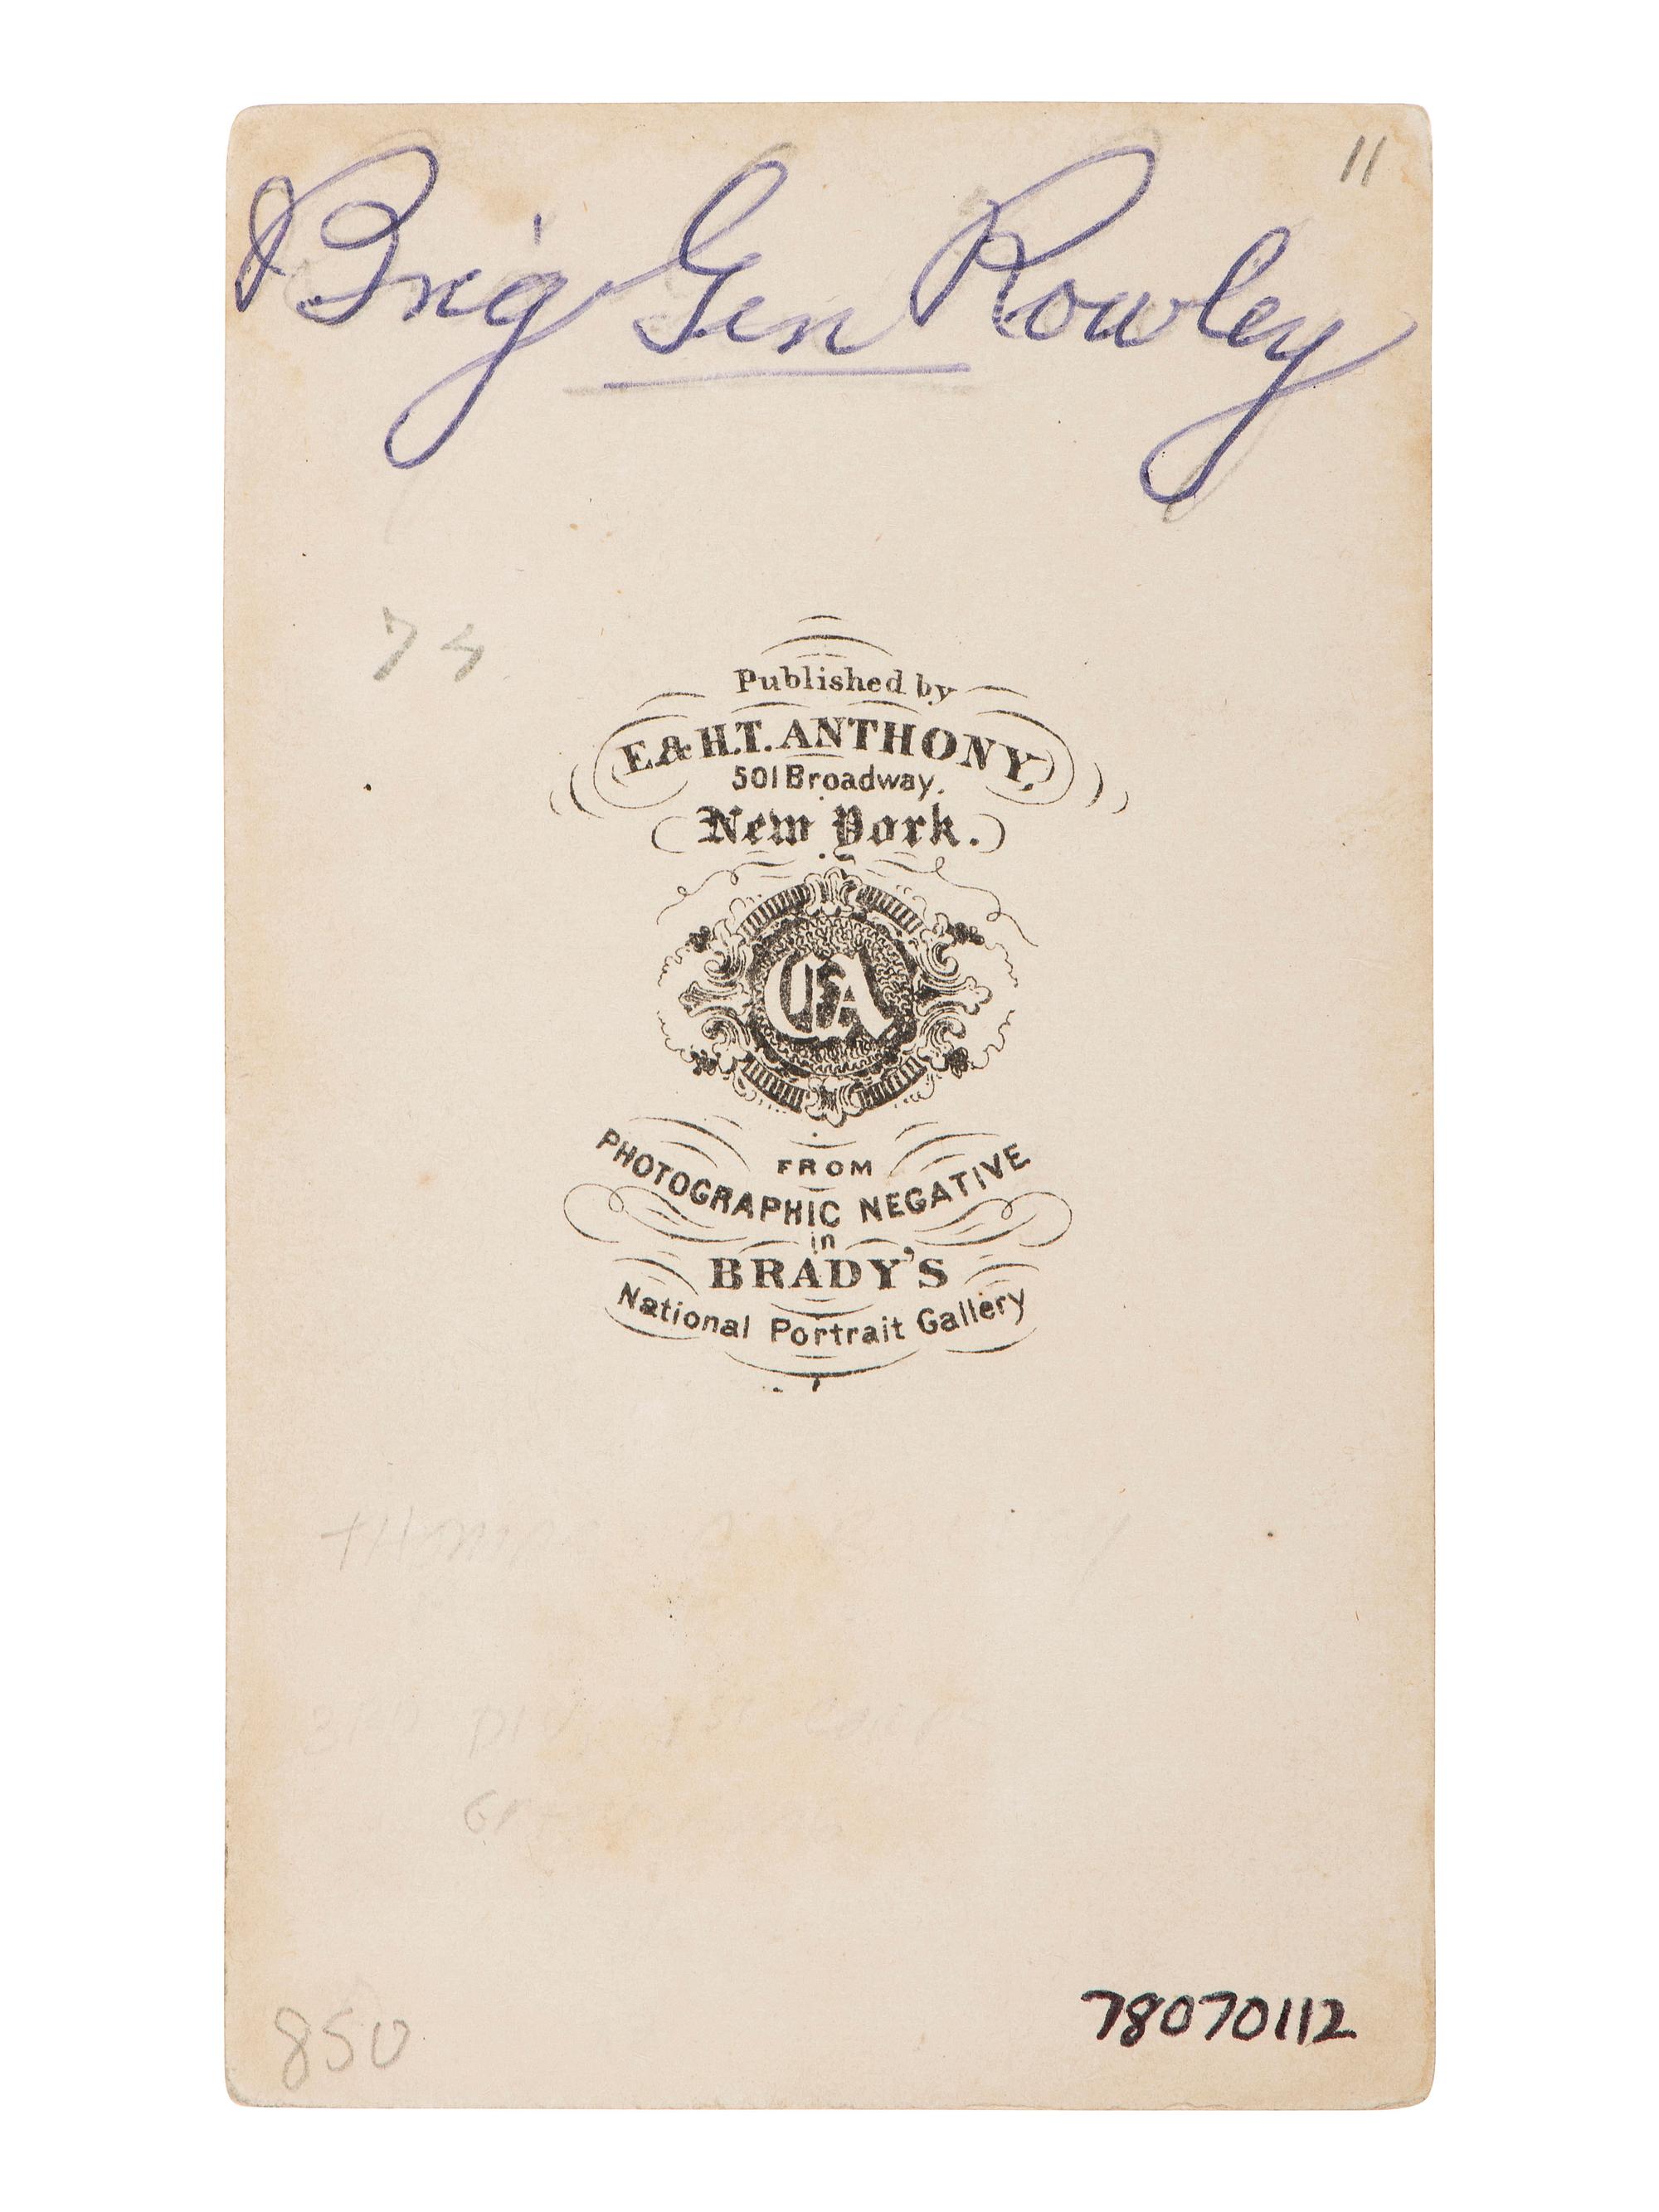 11
Brig Gen Rowley
Published by
E. & H.T. ANTHONY,
501 Broadway.
New York.
EA
FROM
PHOTOGRAPHIC NEGATIVE
in
BRADY'S
National Portrait Gallery
3RD DIV. 1ST CORPS
850
78070112